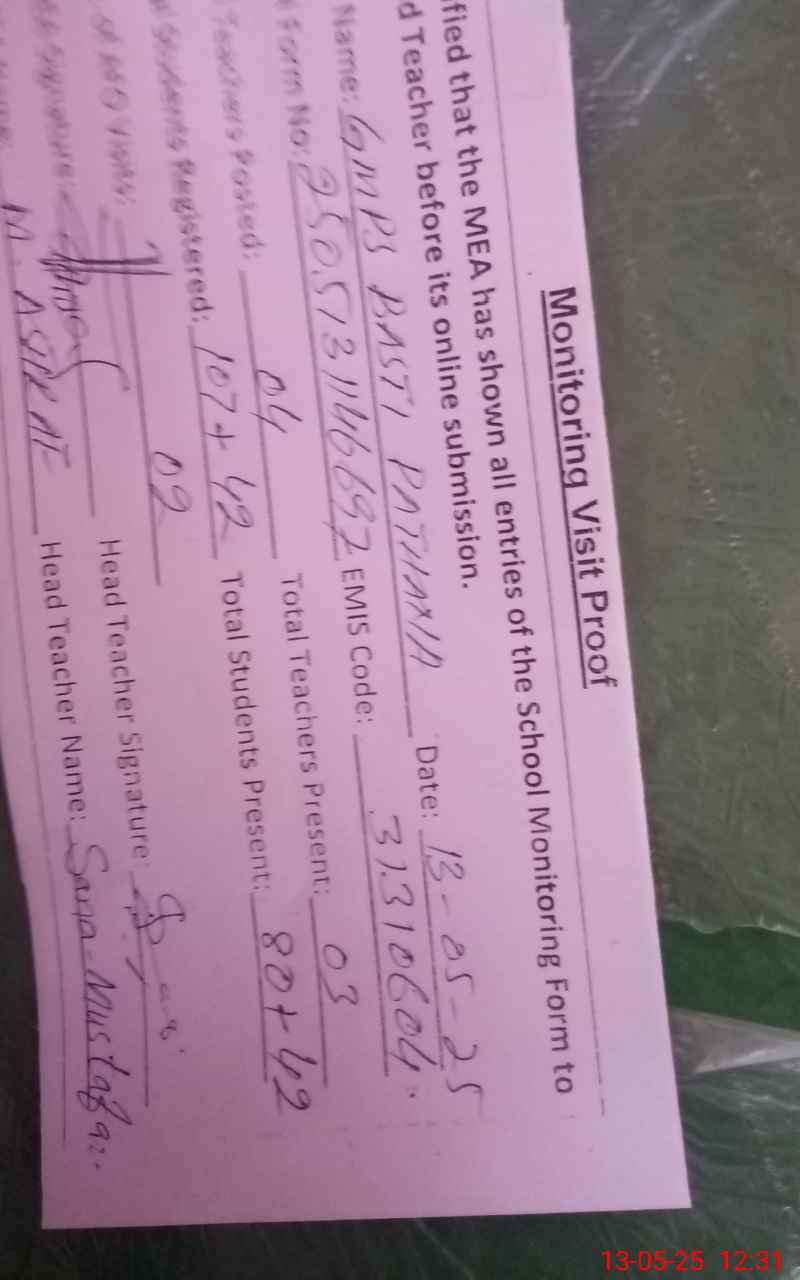 Monitoring Visit Proof
fied that the MEA has shown all entries of the School Monitoring Form to
d Teacher before its online submission.
Name: GMPS BASTI PATHANIA Date: 13-05-25
Form No: 2505131146697 EMIS Code: 31310604
Teachers Posted: 04 Total Teachers Present: 03
Students Registered: 107+42 Total Students Present: 80+42
Visits: 02
Signature: Head Teacher Signature:
M. ASIF Head Teacher Name: Sana Mustafa
13-05-25 12:31